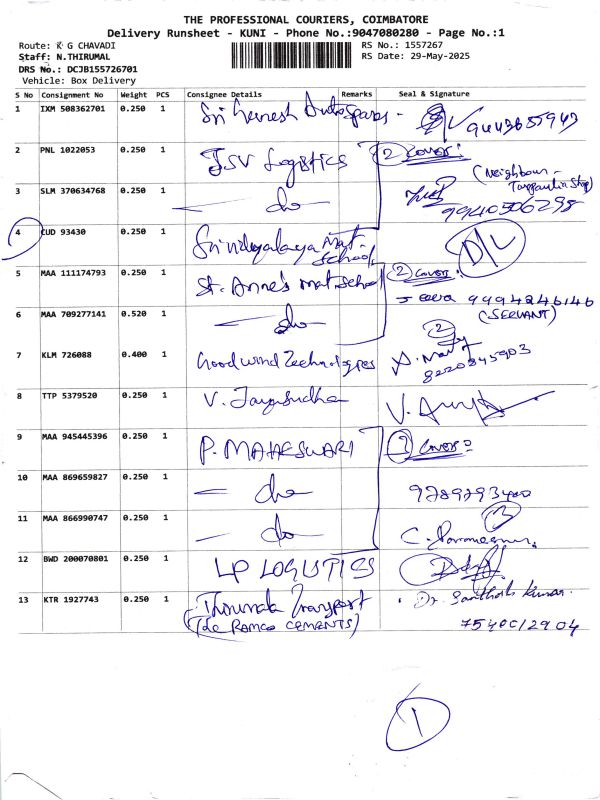 THE PROFESSIONAL COURIERS, COIMBATORE
Delivery Runsheet - KUNI - Phone No.:9047080280 - Page No.:1
Route: K G CHAVADI
RS No.: 1557267
Staff: N.THIRUMAL
RS Date: 29-May-2025
DRS No.: DCJB155726701
Vehicle: Box Delivery
S No Consignment No Weight PCS Consignee Details Remarks Seal & Signature
1 IXM 508362701 0.250 1 Sri Autospares -
2 PNL 1022053 0.250 1 JSV Logistics (2) covers:
(Neighbour - Shop)
3 SLM 370634768 0.250 1 — do — 9940506298
4 CUD 93430 0.250 1 Srividyalaya Mat- School D/L
5 MAA 111174793 0.250 1 St. Anne's mat School (2) covers:
9994246146
6 MAA 709277141 0.520 1 — do — (SERVANT)
(2)
7 KLM 726088 0.400 1 Goodwind Technologies
8220845903
8 TTP 5379520 0.250 1 V. Jayasudha V.
9 MAA 945445396 0.250 1 P. MAHESWARI (3) covers:
10 MAA 869659827 0.250 1 — do — 9789793400
(3)
11 MAA 866990747 0.250 1 — do — C.
12 BWD 200070801 0.250 1 LP LOGISTICS
13 KTR 1927743 0.250 1 Thirumala Transport Dr. Santhosh Kumar.
(De RAMCO CEMENTS) 7540012904
1